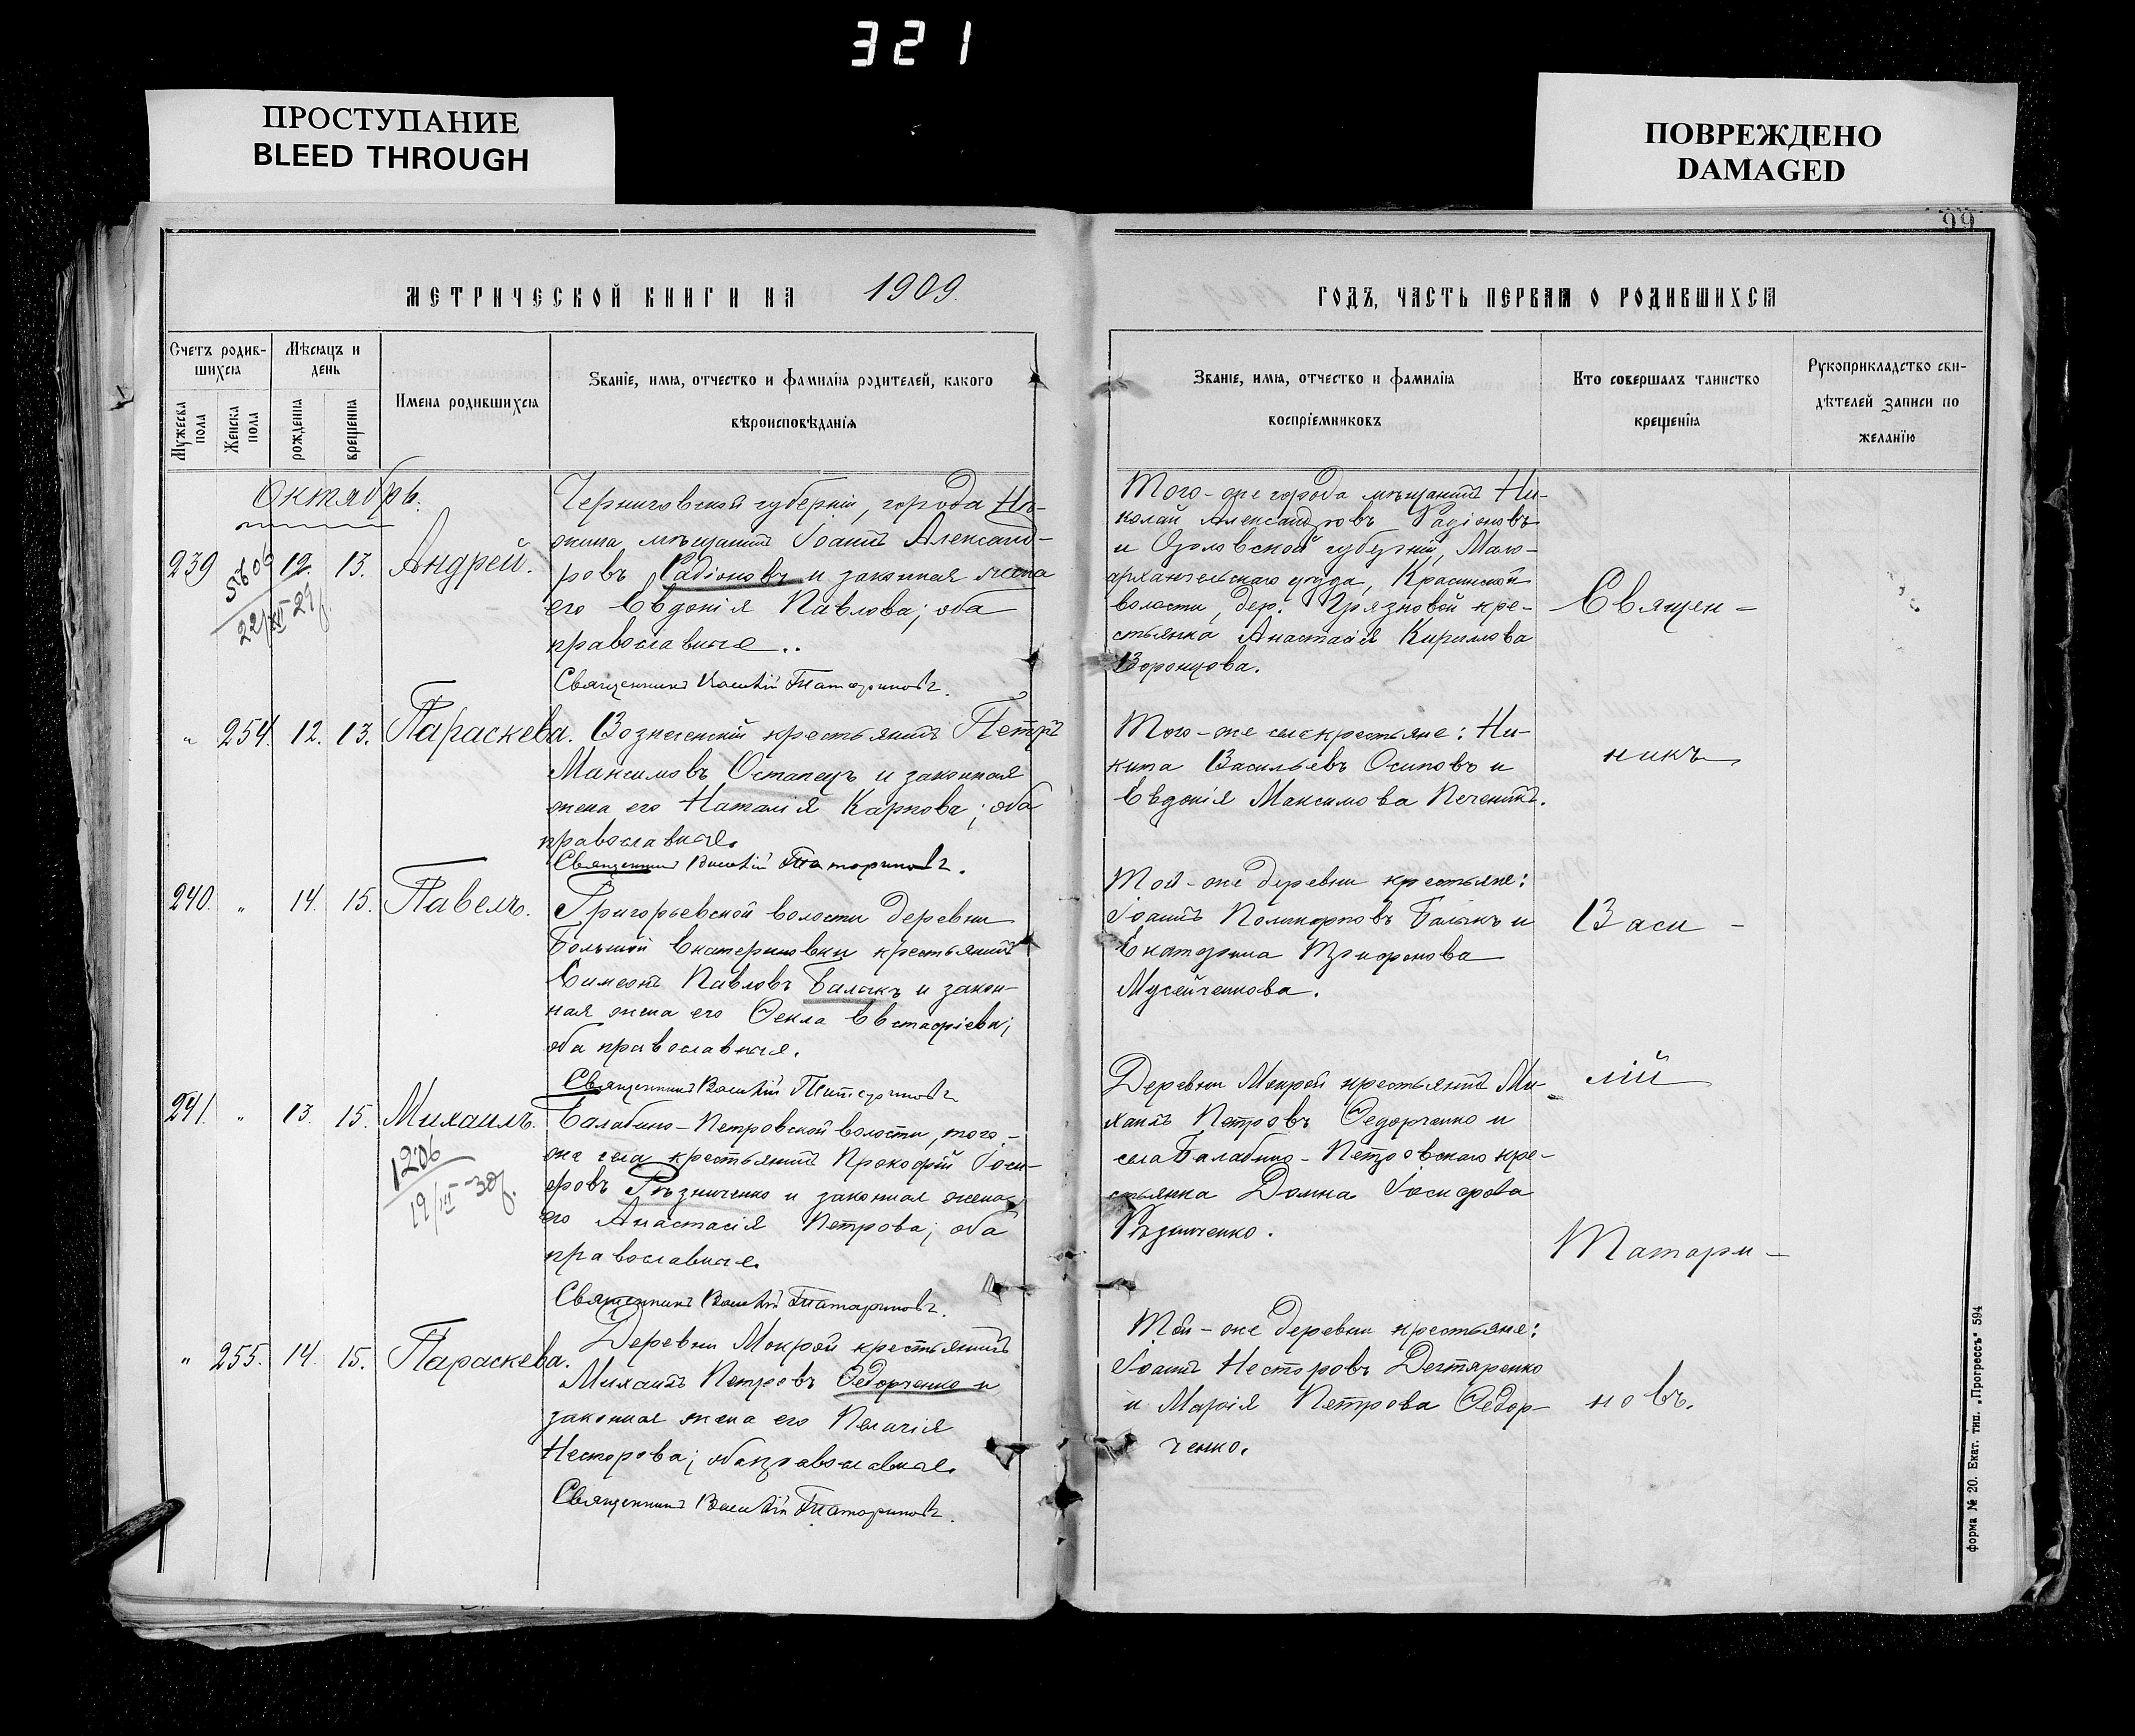 321
ПРОСТУПАНИЕ
BLEED THROUGH
ПОВРЕЖДЕНО
DAMAGED
99
МЕТРИЧЕСКОЙ КНИГИ НА 1909.
ГОДЪ, ЧАСТЬ ПЕРВАЯ О РОДИВШИХСЯ
Счетъ родив-
шихся
Мѣсяцъ и
день
Мужеска
пола
Женска
пола
рожденія
крещенія
Имена родившихся
Званіе, имя, отчество и фамилія родителей, какого
вѣроисповѣданія
Званіе, имя, отчество и фамилія
воспріемниковъ
Кто совершалъ таинство
крещенія
Рукоприкладство сви-
дѣтелей записи по
желанію
Октябрь.
239 12. 13. Андрей.
22/XII 29 г.
Черниговской губерніи, города Нѣ-
жина мѣщанинъ Іоаннъ Александ-
ровъ Радіоновъ и законная жена
его Евдокія Павлова; оба
православные..
Священникъ Василій Татариновъ.
Того-же города мѣщанинъ Ни-
колай Александровъ Радіоновъ
и Орловской губерніи, Мало-
архангельскаго уѣзда, Красинской
волости, дер. Грязновой кре-
стьянка Анастасія Кириллова
Воронцова.
" 254. 12. 13. Параскева.
Вознесенскій крестьянинъ Петръ
Максимовъ Остапецъ и законная
жена его Наталія Карпова; оба
православные.
Священникъ Василій Татариновъ.
Того-же села крестьяне: Ни-
кита Васильевъ Осиповъ и
Евдокія Максимова Печеникъ.
240. " 14. 15. Павелъ.
Григорьевской волости деревни
Большой Екатериновки крестьянинъ
Симеонъ Павловъ Балакъ и закон-
ная жена его Ѳекла Евстафіева;
оба православные.
Священникъ Василій Татариновъ
Той-же деревни крестьяне:
Іоаннъ Поликарповъ Балакъ и
Екатерина Трифонова
Мусейченкова.
241. " 13. 15. Михаилъ.
1206
19/III-30 г.
Балабино-Петровской волости, того-
же села крестьянинъ Прокофій Іоси-
фовъ Рѣзниченко и законная жена
его Анастасія Петрова; оба
православные.
Священникъ Василій Татариновъ.
Деревни Мокрой крестьянинъ Ми-
хаилъ Петровъ Ѳедорченко и
села Балабино-Петровскаго кре-
стьянка Домна Іосифова
Рѣзниченко.
" 255. 14. 15. Параскева.
Деревни Мокрой крестьянинъ
Михаилъ Петровъ Ѳедорченко и
законная жена его Пелагія
Несторова; оба православные.
Священникъ Василій Татариновъ.
Той-же деревни крестьяне:
Іоаннъ Несторовъ Дегтяренко
и Марія Петрова Ѳедор-
ченко.
Священ-
никъ
Васи-
лій
Татари-
новъ.
форма № 20. Екат. тип. „Прогрессъ" 594